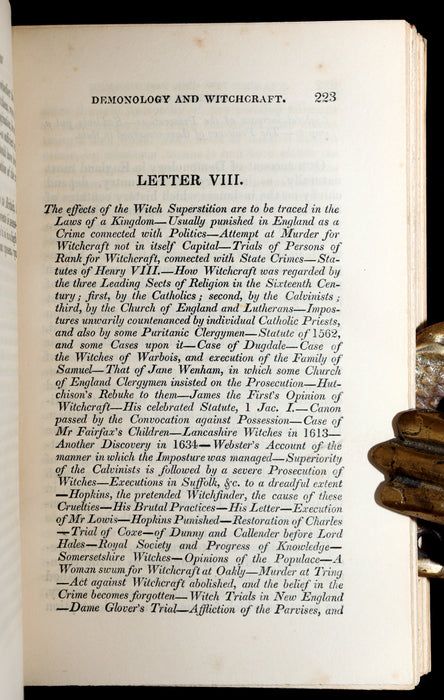 DEMONOLOGY AND WITCHCRAFT. 223
LETTER VIII.
The effects of the Witch Superstition are to be traced in the
Laws of a Kingdom—Usually punished in England as a
Crime connected with Politics—Attempt at Murder for
Witchcraft not in itself Capital—Trials of Persons of
Rank for Witchcraft, connected with State Crimes—Sta-
tutes of Henry VIII.—How Witchcraft was regarded by
the three Leading Sects of Religion in the Sixteenth Cen-
tury; first, by the Catholics; second, by the Calvinists;
third, by the Church of England and Lutherans—Impos-
tures unwarily countenanced by individual Catholic Priests,
and also by some Puritanic Clergymen—Statute of 1562,
and some Cases upon it—Case of Dugdale—Case of
the Witches of Warbois, and execution of the Family of
Samuel—That of Jane Wenham, in which some Church
of England Clergymen insisted on the Prosecution—Hut-
chison's Rebuke to them—James the First's Opinion of
Witchcraft—His celebrated Statute, 1 Jac. I.—Canon
passed by the Convocation against Possession—Case of
Mr Fairfax's Children—Lancashire Witches in 1613—
Another Discovery in 1634—Webster's Account of the
manner in which the Imposture was managed—Superiority
of the Calvinists is followed by a severe Prosecution of
Witches—Executions in Suffolk, &c. to a dreadful extent
—Hopkins, the pretended Witchfinder, the cause of these
Cruelties—His Brutal Practices—His Letter—Execution
of Mr Lowis—Hopkins Punished—Restoration of Charles
—Trial of Coxe—of Dunny and Callender before Lord
Hales—Royal Society and Progress of Knowledge—
Somersetshire Witches—Opinions of the Populace—A
Woman swum for Witchcraft at Oakly—Murder at Tring
—Act against Witchcraft abolished, and the belief in the
Crime becomes forgotten—Witch Trials in New England
—Dame Glover's Trial—Affliction of the Parvises, and